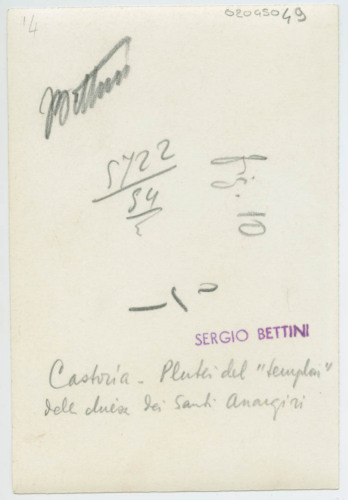 14
02045049
Bettini
5722
54
fig. 10
SERGIO BETTINI
Castoria - Plutei del "templon"
della chiesa dei Santi Anargiri